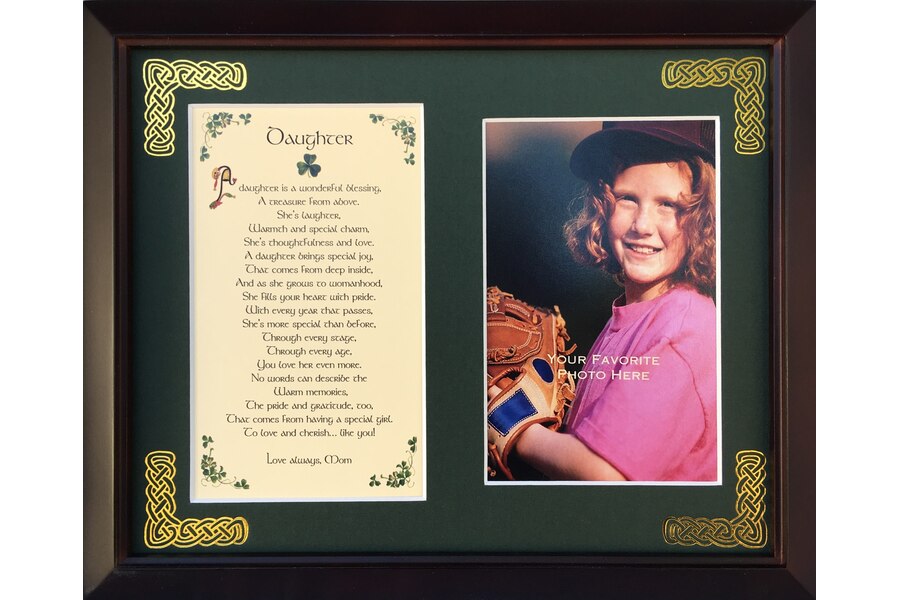 Daughter
A daughter is a wonderful blessing,
A treasure from above.
She's laughter,
Warmth and special charm,
She's thoughtfulness and love.
A daughter brings special joy,
That comes from deep inside,
And as she grows to womanhood,
She fills your heart with pride.
With every year that passes,
She's more special than before,
Through every stage,
Through every age,
You love her even more.
No words can describe the
Warm memories,
The pride and gratitude, too,
That comes from having a special girl.
To love and cherish... like you!
Love always, Mom
Your Favorite
Photo Here